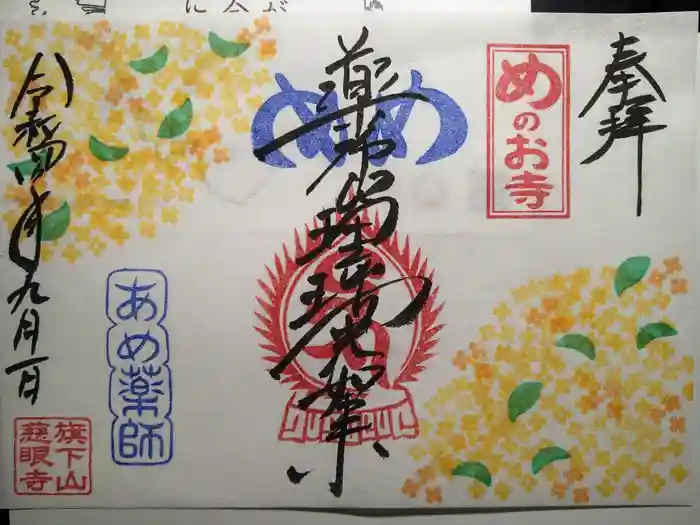 奉拝
めのお寺
めめ
薬師瑠璃光如来
あめ薬師
令和四年九月一日
旗下山
慈眼寺